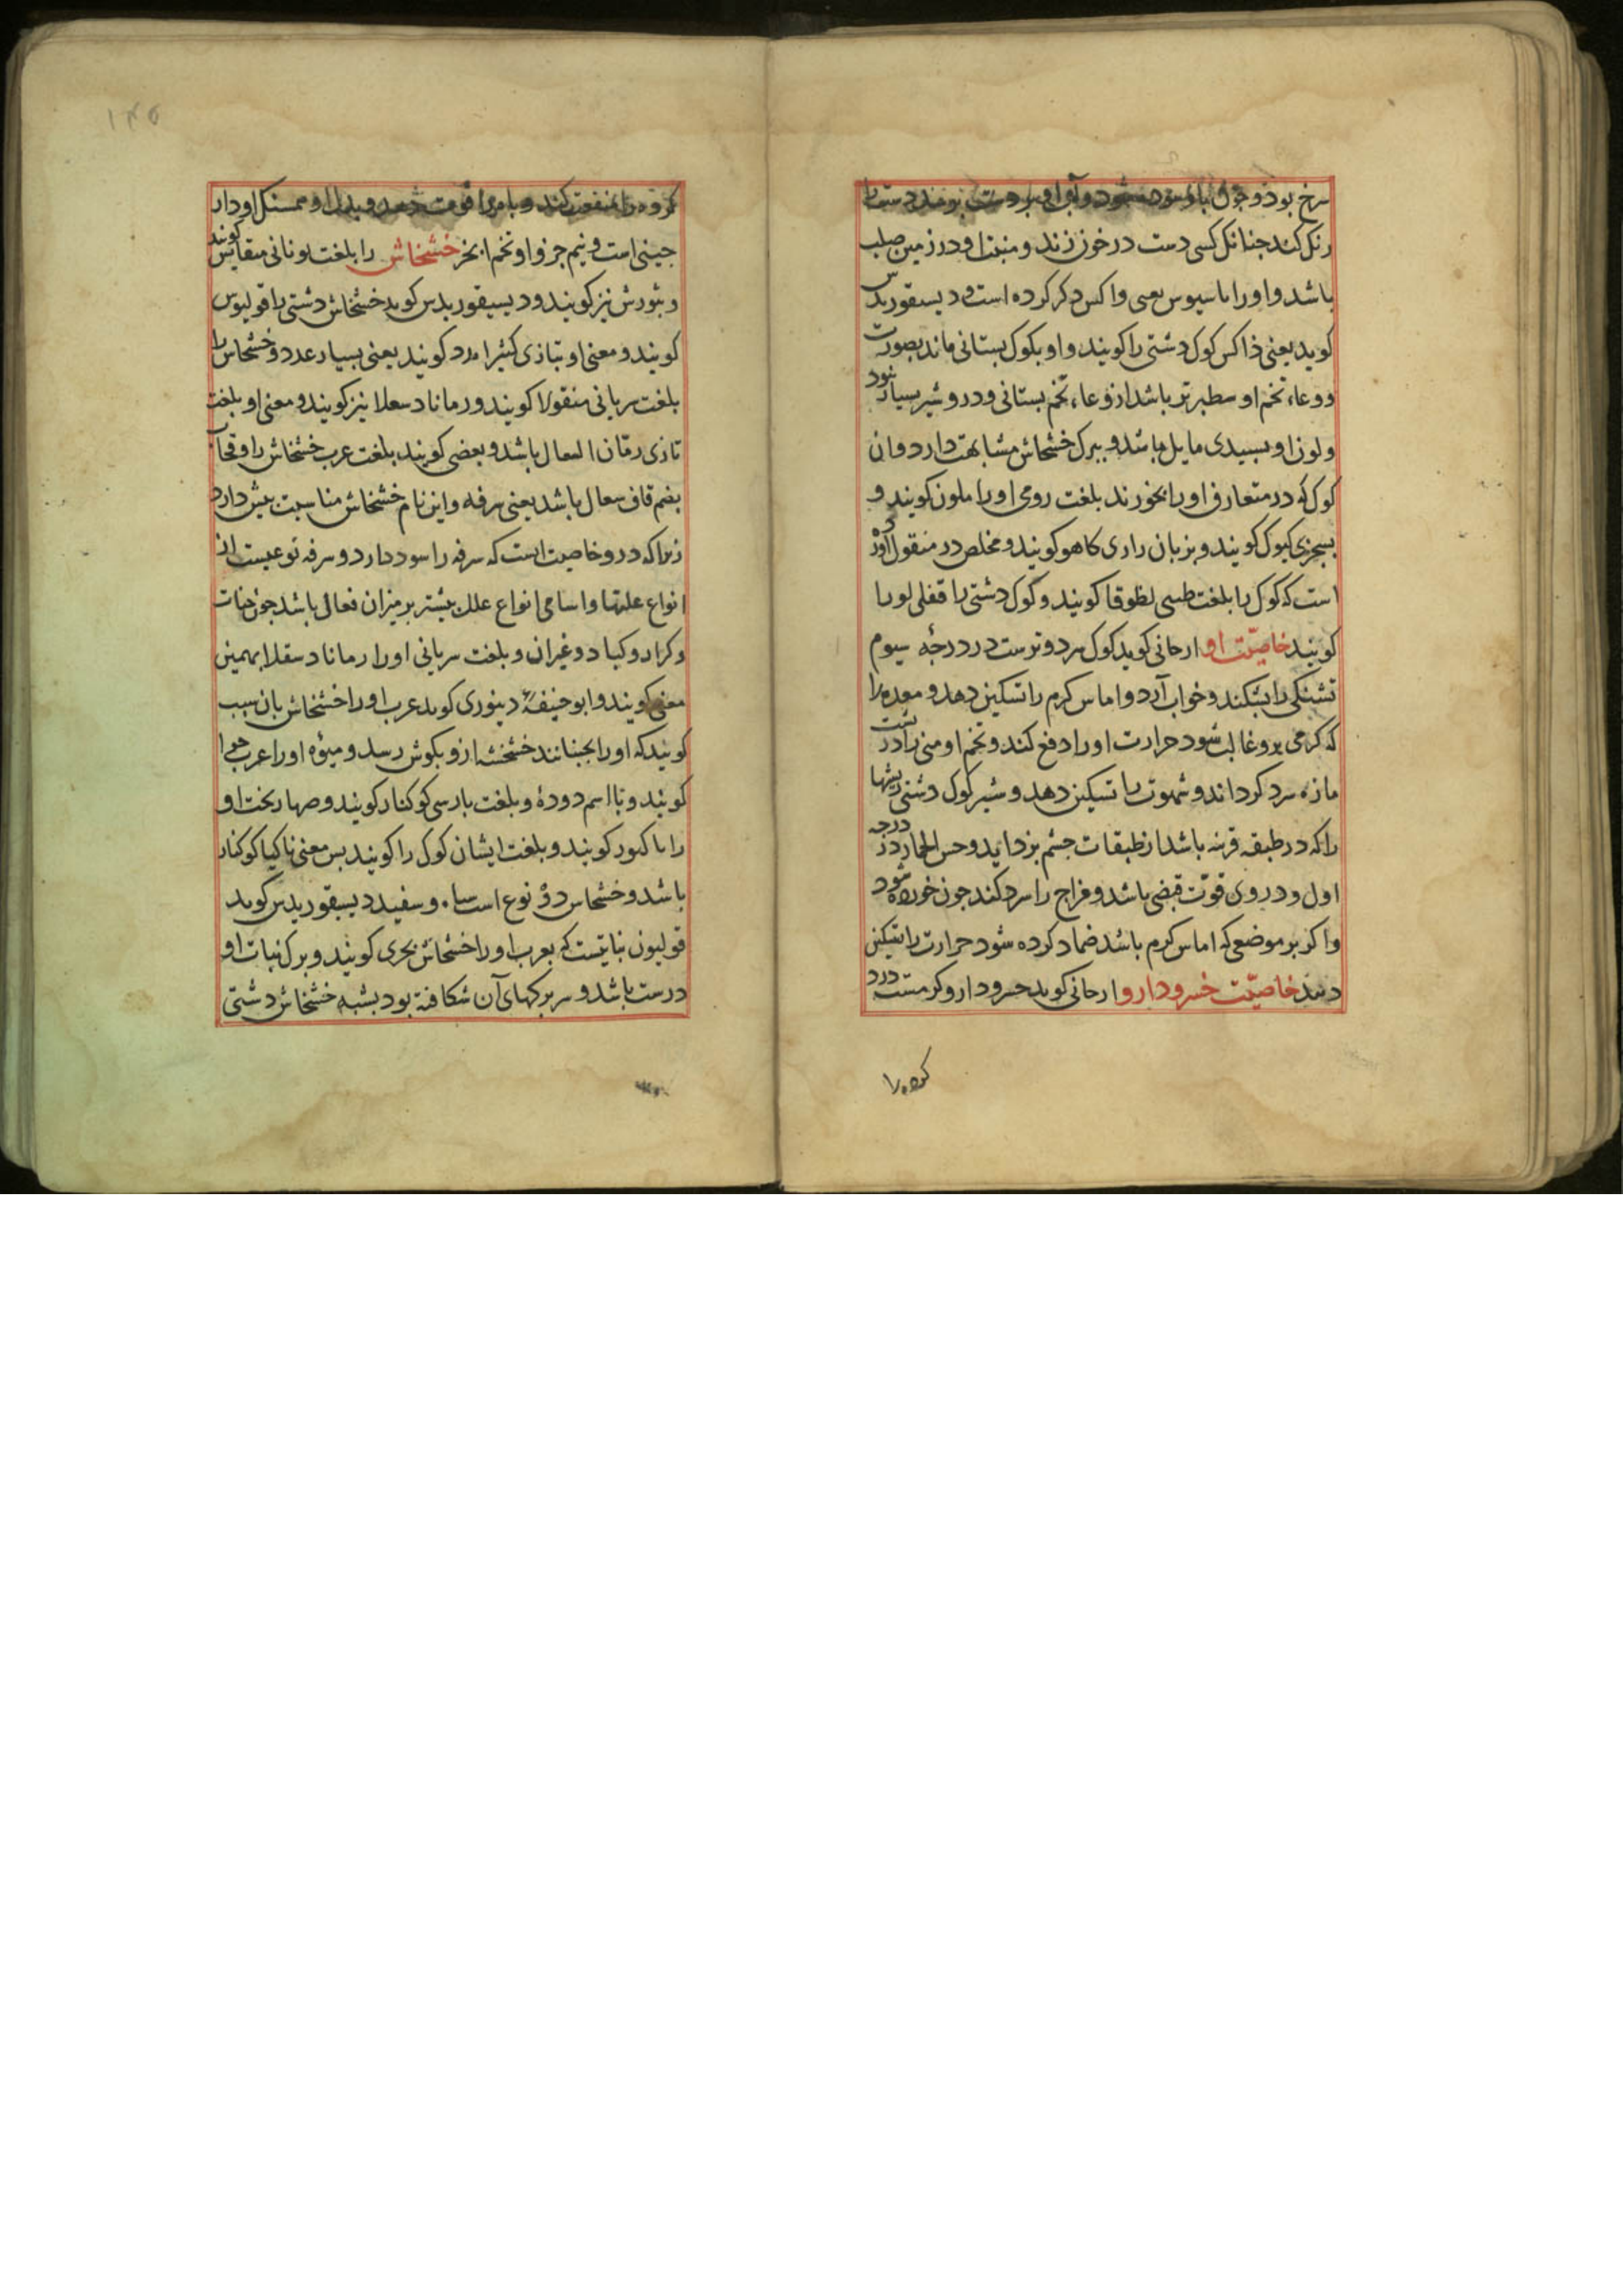 سرخ بود و چون با دست بزنند دست را
رنک کند جنانک کسی دست در خون زند و منبت او در زمین صلب
باشد و او را اناسیوس یعنی واکس ذکر کرده است و دیسقوریدس
کوید یعنی ذاکس کوک دشتی را کویند و او بکوک بستانی ماند بصورت
و وعاء تخم او سطبرتر باشد از وعاء تخم بستانی و درو شیر بسیار بود
و لون او بسبیدی مایل باشد و ببرک خشخاش مشابهت دارد و آن
کوک که در متعارف او را بخورند بلغت رومی او را ملون کویند و
بسجزی کبوک کویند و بزبان رازی کاهو کویند و مخلص در منقول آورده
است که کوک را بلغت طبسی لظوقا کویند و کوک دشتی را قفلی لورا
کویند خاصیّت او ارجانی کوید کوک سرد و ترست در درجه سیوم
تشنکی را بشکند و خواب آرد و اماس کرم را تسکین دهد و معده را
که کرمی برو غالب شود حرارت او را دفع کند و تخم او منی را در پشت
مازه سرد کرداند و شهوت را تسکین دهد و شیر کوک دشتی ریشها
را که در طبقه قرنیه باشد از طبقات جشم بزداید و خس الحمار در درجه
اول و در وی قوّت قبضی باشد و مزاج را سرد کند جون خورده شود
و اکر بر موضعی که اماس کرم باشد ضماد کرده شود حرارت را تسکین
دهد خاصیّت خسرودارو ارجانی کوید خسرودارو کرمست درد
کرده را
کرده را منفعت کند و باه را قوت دهد و بدل او همسنک او دار
جینی است و نیم جزو او تخم انجر خشخاش را بلغت یونانی میقانس کویند
و بثورش نیز کویند و دیسیقوریدس کوید خشخاش دشتی را قولیوس
کویند و معنی او بتازی کثیرا مدد کویند یعنی بسیار عدد و خشخاش را
بلغت سریانی منقولا کویند و رمانا دسعلا نیز کویند و معنی او بلغت
تازی رمّان السعال باشد و بعضی کویند بلغت عرب خشخاش را و قحاب
بضم قاف سعال باشد یعنی سرفه و این نام خشخاش مناسبت بیش دارد
زیرا که درو خاصیت است که سرفه را سود دارد و سرفه نوعیست از
انواع علتها و اسامی انواع علل بیشتر بر میزان فعال باشد جون خنات
و کزاز و کباد و غیر آن و بلغت سریانی او را رمانا دسقلا بهمین
معنی کویند و ابو حنیفهٔ دینوری کوید عرب او را خشخاش بان سبب
کویند که او را بجنبانند خشخشه ازو بکوش رسد و میوه او را عرب جرا
کویند و بااسم دوده و بلغت بارسی کوکنار کویند و صهاربخت او
را ناکنور کویند و بلغت ایشان کوک را کویند بس معنی ناکیا کوکنار
باشد و خشخاش دو نوع است سیاه و سفید دیسقوریدس کوید
قولیون نباتیست که بعرب او را خشخاش بحری کویند و برک نبات او
درست باشد و سر برکهای آن شکافته بود بشبه خشخاش دشتی
۱۴۵